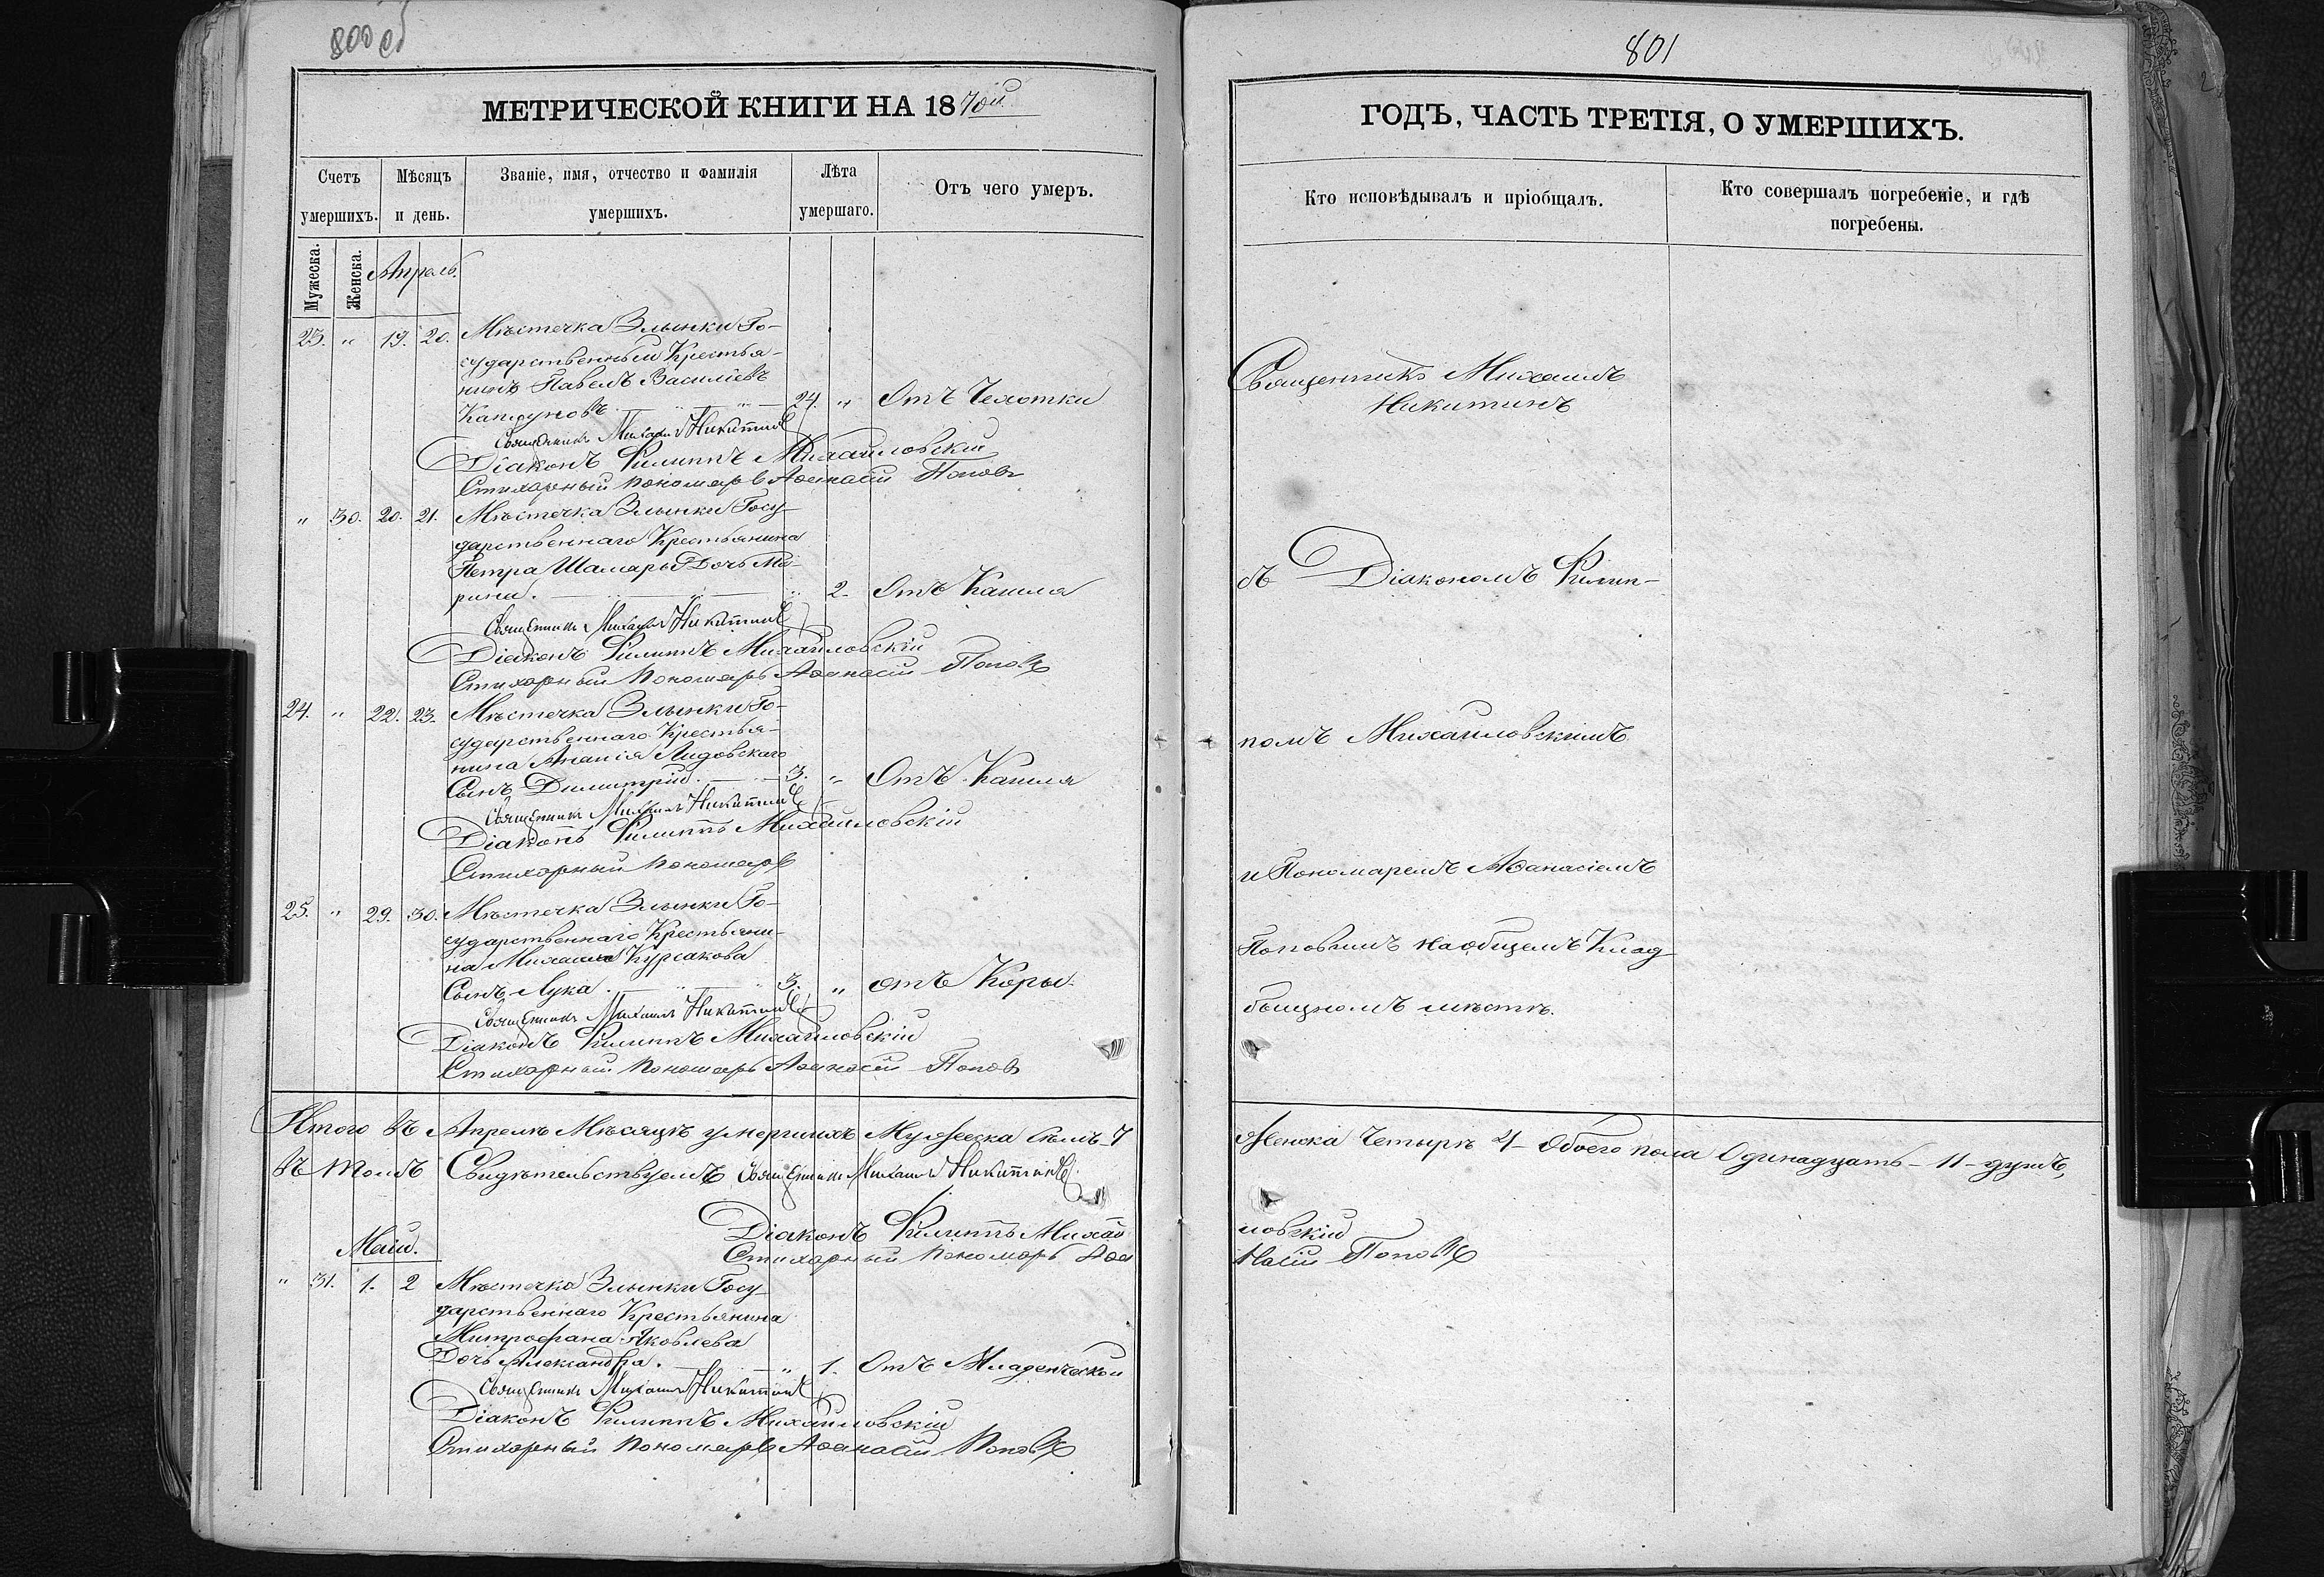 800 об
МЕТРИЧЕСКОЙ КНИГИ НА 1870й
Счетъ умершихъ.
Мѣсяцъ и день.
Званіе, имя, отчество и фамилія умершихъ.
Лѣта умершаго.
Отъ чего умеръ.
Мужеска.
Женска.
Апрель.
23. " 19. 20. Мѣстечка Злынки Го-
сударственный Крестья-
нинъ Павелъ Василіевъ
Каплуновъ. 24. " Отъ Чехотки
Священникъ Михаилъ Никитинъ
Діаконъ Филиппъ Михайловскій
Стихарный Пономарь Аѳанасій Поповъ
" 30. 20. 21. Мѣстечка Злынки Госу-
дарственнаго Крестьянина
Петра Шамары Дочь Ма-
рина. " 2. Отъ Кашля
Священникъ Михаилъ Никитинъ
Діаконъ Филиппъ Михайловскій
Стихарный Пономарь Аѳанасій Поповъ
24. " 22. 23. Мѣстечка Злынки Го-
сударственнаго Крестья-
нина Ананія Лидовскаго
Сынъ Димитрій. 3. " Отъ Кашля
Священникъ Михаилъ Никитинъ
Діаконъ Филиппъ Михайловскій
Стихарный Пономарь
25. " 29. 30. Мѣстечка Злынки Го-
сударственнаго Крестьяни-
на Михаила Курсакова
Сынъ Лука. 3. " отъ Коры.
Священникъ Михаилъ Никитинъ
Діаконъ Филиппъ Михайловскій
Стихарный Пономарь Аѳанасій Поповъ
Итого въ Апрелѣ Мѣсяцѣ умершихъ Мужеска Семь 7
Въ томъ Свидѣтельствуемъ Священникъ Михаилъ Никитинъ
Діаконъ Филиппъ Михай
Стихарный Пономарь Аѳа
Май.
" 31. 1. 2 Мѣстечка Злынки Госу-
дарственнаго Крестьянина
Митрофана Яковлева
Дочь Александра. " 1. Отъ Младенческой
Священникъ Михаилъ Никитинъ
Діаконъ Филиппъ Михайловскій
Стихарный Пономарь Аѳанасій Поповъ
801
ГОДЪ, ЧАСТЬ ТРЕТІЯ, О УМЕРШИХЪ.
Кто исповѣдывалъ и пріобщалъ.
Кто совершалъ погребеніе, и гдѣ
погребены.
Священникъ Михаилъ
Никитинъ
съ Діакономъ Филип-
помъ Михайловскимъ
и Пономаремъ Аѳанасіемъ
Поповымъ на общемъ Клад
бищномъ мѣстѣ.
Женска Четыре 4 - Обоего пола Одинадцать - 11 - душъ,
ловскій
насій Поповъ